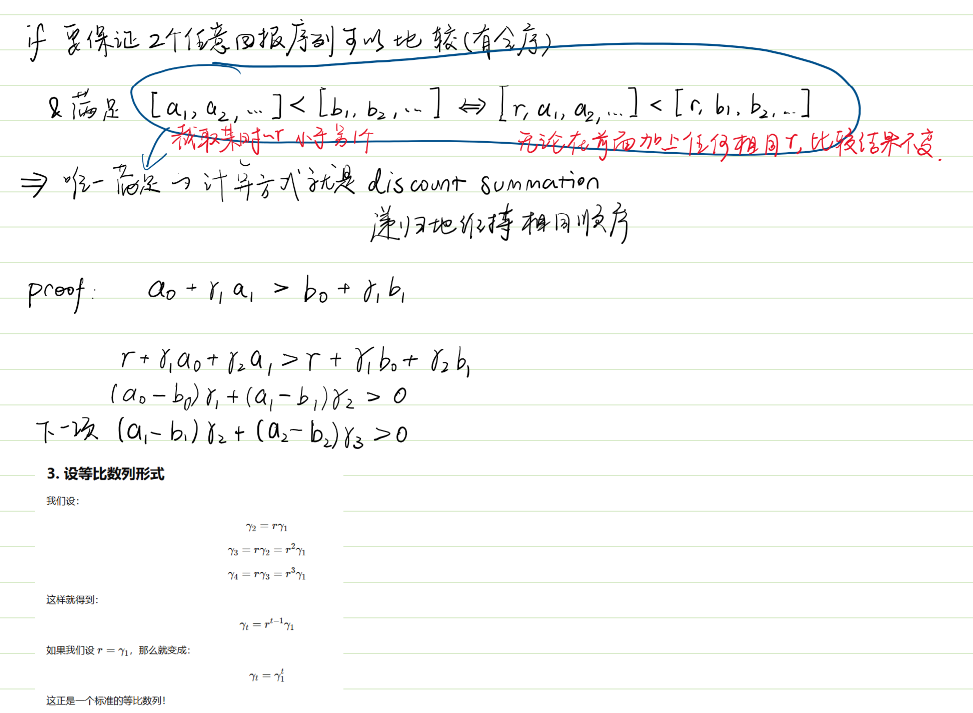 if 要保证 2个任意回报序列可以比较(有全序)
&满足 [a₁, a₂, ...] < [b₁, b₂, ...] ⇔ [r, a₁, a₂, ...] < [r, b₁, b₂, ...]
截取某时 小于另1个 无论在前面加上任何相同 r, 比较结果不变.
⇒ 唯一满足 计算方式就是 discount summation
递归地维持相同顺序
proof: a₀ + γ₁ a₁ > b₀ + γ₁ b₁
r + γ₁a₀ + γ₂a₁ > r + γ₁b₀ + γ₂b₁
(a₀ - b₀)γ₁ + (a₁ - b₁)γ₂ > 0
下一项 (a₁ - b₁)γ₂ + (a₂ - b₂)γ₃ > 0
3. 设等比数列形式
我们设：
γ₂ = rγ₁
γ₃ = rγ₂ = r²γ₁
γ₄ = rγ₃ = r³γ₁
这样就得到：
γₜ = rᵗ⁻¹γ₁
如果我们设 r = γ₁，那么就变成：
γₜ = γ₁ᵗ
这正是一个标准的等比数列！